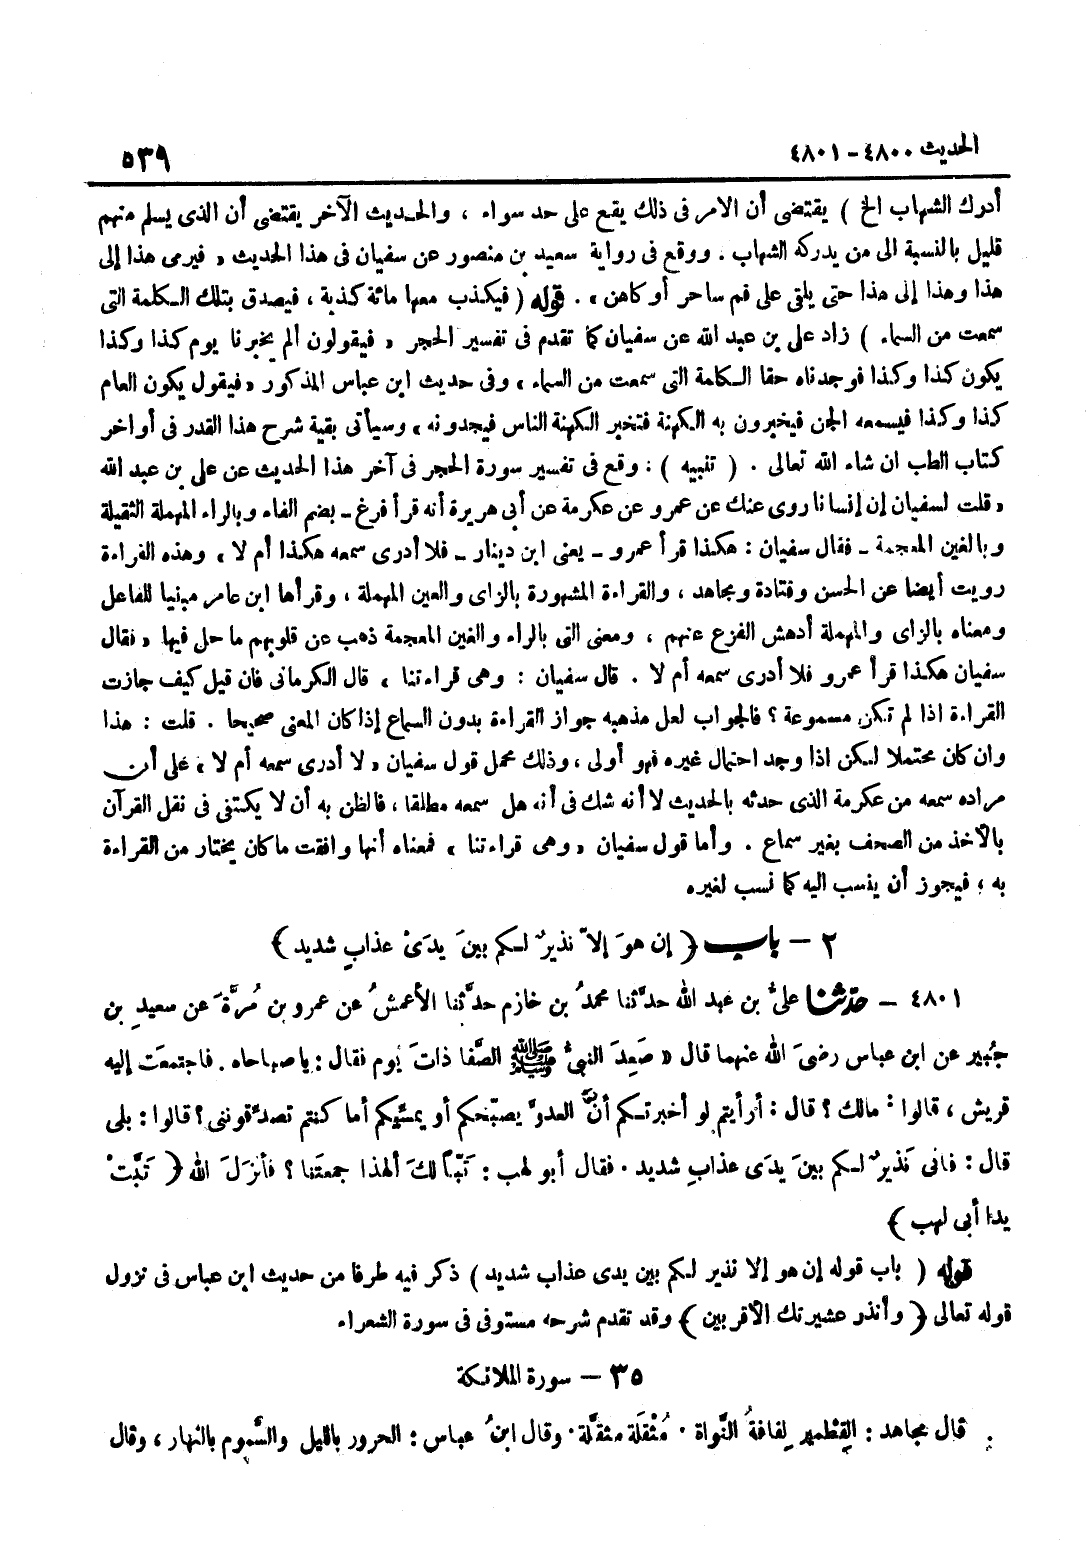 الحديث ٤٨٠٠ - ٤٨٠١
٥٣٩
أدرك الشهاب الخ ) يقتضى أن الامر فى ذلك يقع على حد سواء ، والحديث الآخر يقتضى أن الذى يسلم منهم
قليل بالنسبة الى من يدركه الشهاب . ووقع فى رواية سعيد بن منصور عن سفيان فى هذا الحديث « فيرمى هذا إلى
هذا وهذا إلى هذا حتى يلقى على فم ساحر أو كاهن » . قوله ( فيكذب معها مائة كذبة ، فيصدق بتلك الكلمة التى
سمعت من السماء ) زاد على بن عبد الله عن سفيان كما تقدم فى تفسير الحجر « فيقولون ألم يخبرنا يوم كذا وكذا
يكون كذا وكذا فوجدناه حقا الكلمة التى سمعت من السماء » وفى حديث ابن عباس المذكور « فيقول يكون العام
كذا وكذا فيسمعه الجن فيخبرون به الكهنة فتخبر الكهنة الناس فيجدونه » وسيأتى بقية شرح هذا القدر فى أواخر
كتاب الطب ان شاء الله تعالى . ( تنبيه ) : وقع فى تفسير سورة الحجر فى آخر هذا الحديث عن على بن عبد الله
« قلت لسفيان إن إنسانا روى عنك عن عمرو عن عكرمة عن أبى هريرة أنه قرأ فرغ ـ بضم الفاء وبالراء المهملة الثقيلة
وبالغين المعجمة ـ فقال سفيان : هكذا قرأ عمرو ـ يعنى ابن دينار ـ فلا أدرى سمعه هكذا أم لا » وهذه القراءة
رويت أيضا عن الحسن وقتادة ومجاهد ، والقراءة المشهورة بالزاى والعين المهملة ، وقرأها ابن عامر مبنيا للفاعل
ومعناه بالزاى والمهملة أدهش الفزع عنهم ، ومعنى التى بالراء والغين المعجمة ذهب عن قلوبهم ما حل فيها « فقال
سفيان هكذا قرأ عمرو فلا أدرى سمعه أم لا . قال سفيان : وهى قراءتنا » قال الكرمانى فان قيل كيف جازت
القراءة اذا لم تكن مسموعة ؟ فالجواب لعل مذهبه جواز القراءة بدون السماع إذا كان المعنى صحيحا . قلت : هذا
وان كان محتملا لكن اذا وجد احتمال غيره فهو أولى ، وذلك محمل قول سفيان « لا أدرى سمعه أم لا » على أن
مراده سمعه من عكرمة الذى حدثه بالحديث لا أنه شك فى أنه هل سمعه مطلقا ، فالظن به أن لا يكتفى فى نقل القرآن
بالآخذ من الصحف بغير سماع . وأما قول سفيان « وهى قراءتنا » فمعناه أنها وافقت ما كان يختار من القراءة
به ، فيجوز أن ينسب اليه كما نسب لغيره
٢ – باب ﴿ إن هوَ إلاّ نذيرٌ لكم بينَ يدَىْ عذابٍ شديد ﴾
٤٨٠١ – حدّثنا علىُّ بن عبد الله حدَّثنا محمدُ بن خازم حدَّثنا الأعمشُ عن عمرو بن مُرَّةَ عن سعيدِ بن
جُبير عن ابن عباس رضىَ الله عنهما قال « صَعِدَ النبىُّ ﷺ الصَّفا ذاتَ يوم فقال : يا صباحاه . فاجتمعَت إليه
قريش ، قالوا : مالك ؟ قال : أرأيتم لو أخبرتكم أنَّ العدوَّ يصبِّحكم أو يمسِّيكم أما كنتم تصدِّقوننى ؟ قالوا : بلى
قال : فانى نَذيرٌ لكم بينَ يدَى عذابٍ شديد . فقال أبو لهب : تَبّاً لكَ ألهذا جمعتَنا ؟ فأنزلَ الله ﴿ تَبَّتْ
يدا أبى لهب ﴾
قوله ( باب قوله إن هو إلا نذير لكم بين يدى عذاب شديد ) ذكر فيه طرفا من حديث ابن عباس فى نزول
قوله تعالى ﴿ وأنذر عشيرتك الأقربين ﴾ وقد تقدم شرحه مستوفى فى سورة الشعراء
٣٥ – سورة الملائكة
قال مجاهد : القِطْمير لِفافةُ النَّواة . مُثْقَلَة مثقَّلة . وقال ابنُ عباس : الحرور بالليل والسَّموم بالنهار ، وقال